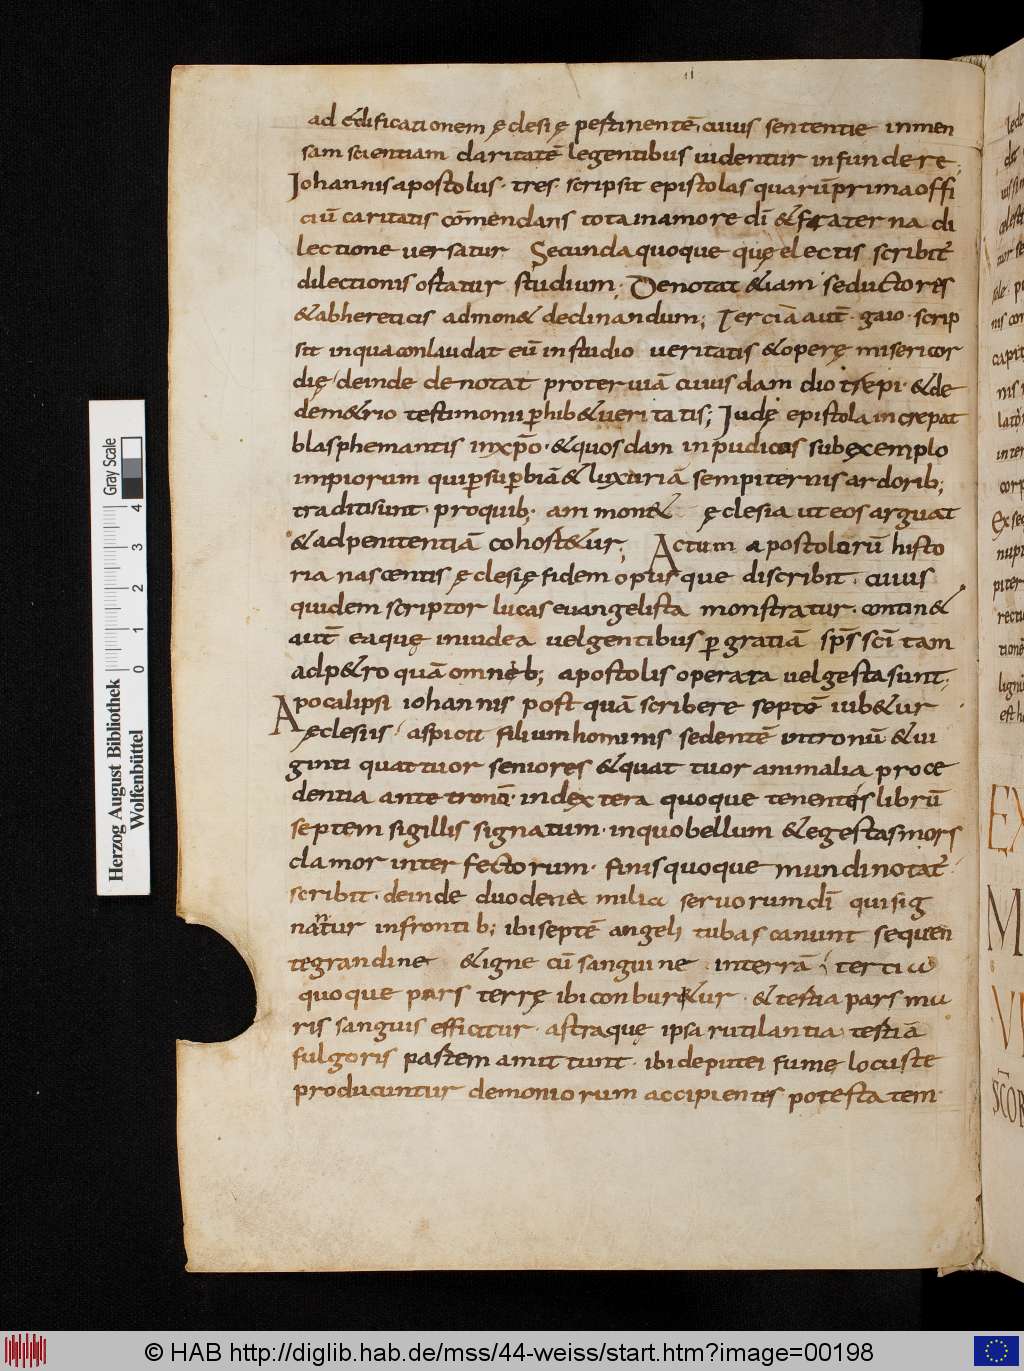 ad ędificationem ęclesię pertinentē, cuius sententie inmen
sam scientiam claritatē legentibus uidentur infundere;
Iohannis apostolus · tres · scripsit epistolas quarū prima offi
ciū caritatis cōmendans tota in amore dī & fraterna di
lectione uersatur Secunda quoque quę electis scribit
dilectionis ostatur studium; Denotat &iam seductores
& ab hereticis admon& declinandum; Terciā aut̄ · gaio · scrip
sit in qua conlaudat eū in studio ueritatis & operę misericor
dię / deinde denotat proteruiā cuiusdam diotrepi · & de
dem&rio testimonii p̄hib& ueritatis; Iudę epistola increpat
blasphemantis in xp̄o · & quosdam inpudicos sub exemplo
impiorum qui p̱ sup̱biā & luxuriā sempiternis ardorib;
traditi sunt · pro quib; · ammon& ęclesia ut eos arguat
& ad penitentiā cohort&ur; Actum apostolorū histo
ria nascentis ęclesię fidem opusque discribit · cuius
quidem scriptor lucas euangelista monstratur · contin&
aut̄ ea quę in iudea uel gentibus p̱ gratiā sp̄s scī tam
ad p&ro quā omnib; apostolis operata uel gesta sunt ·
Apocalipsi iohannis postquā scribere septē iub&ur
ęclesiis / aspicit filium hominis sedentē in tronū & ui
ginti quattuor seniores & quattuor animalia proce
dentia ante tronū · in dextera quoque tenentis librū
septem sigillis signatum · in quo bellum & egestas mors
clamor interfectorum · finis quoque mundi notat̄
scribit · deinde duodena milia seruorum dī qui sig
nantur in frontib; ibi septē angeli tubas canunt sequen
te grandine & igne cū sanguine in terrā / tertia
quoque pars terrę ibi conbur&ur · & tertia pars ma
ris sanguis efficitur · astraquę ipsa rutilantia tertiā
fulgoris partem amittunt · ibi de putei fumę locuste
producuntur demoniorum accipientes potestatem ·
Herzog August Bibliothek
Wolfenbüttel
Gray Scale
0 1 2 3 4
EX
M
VI
SCOR
© HAB http://diglib.hab.de/mss/44-weiss/start.htm?image=00198